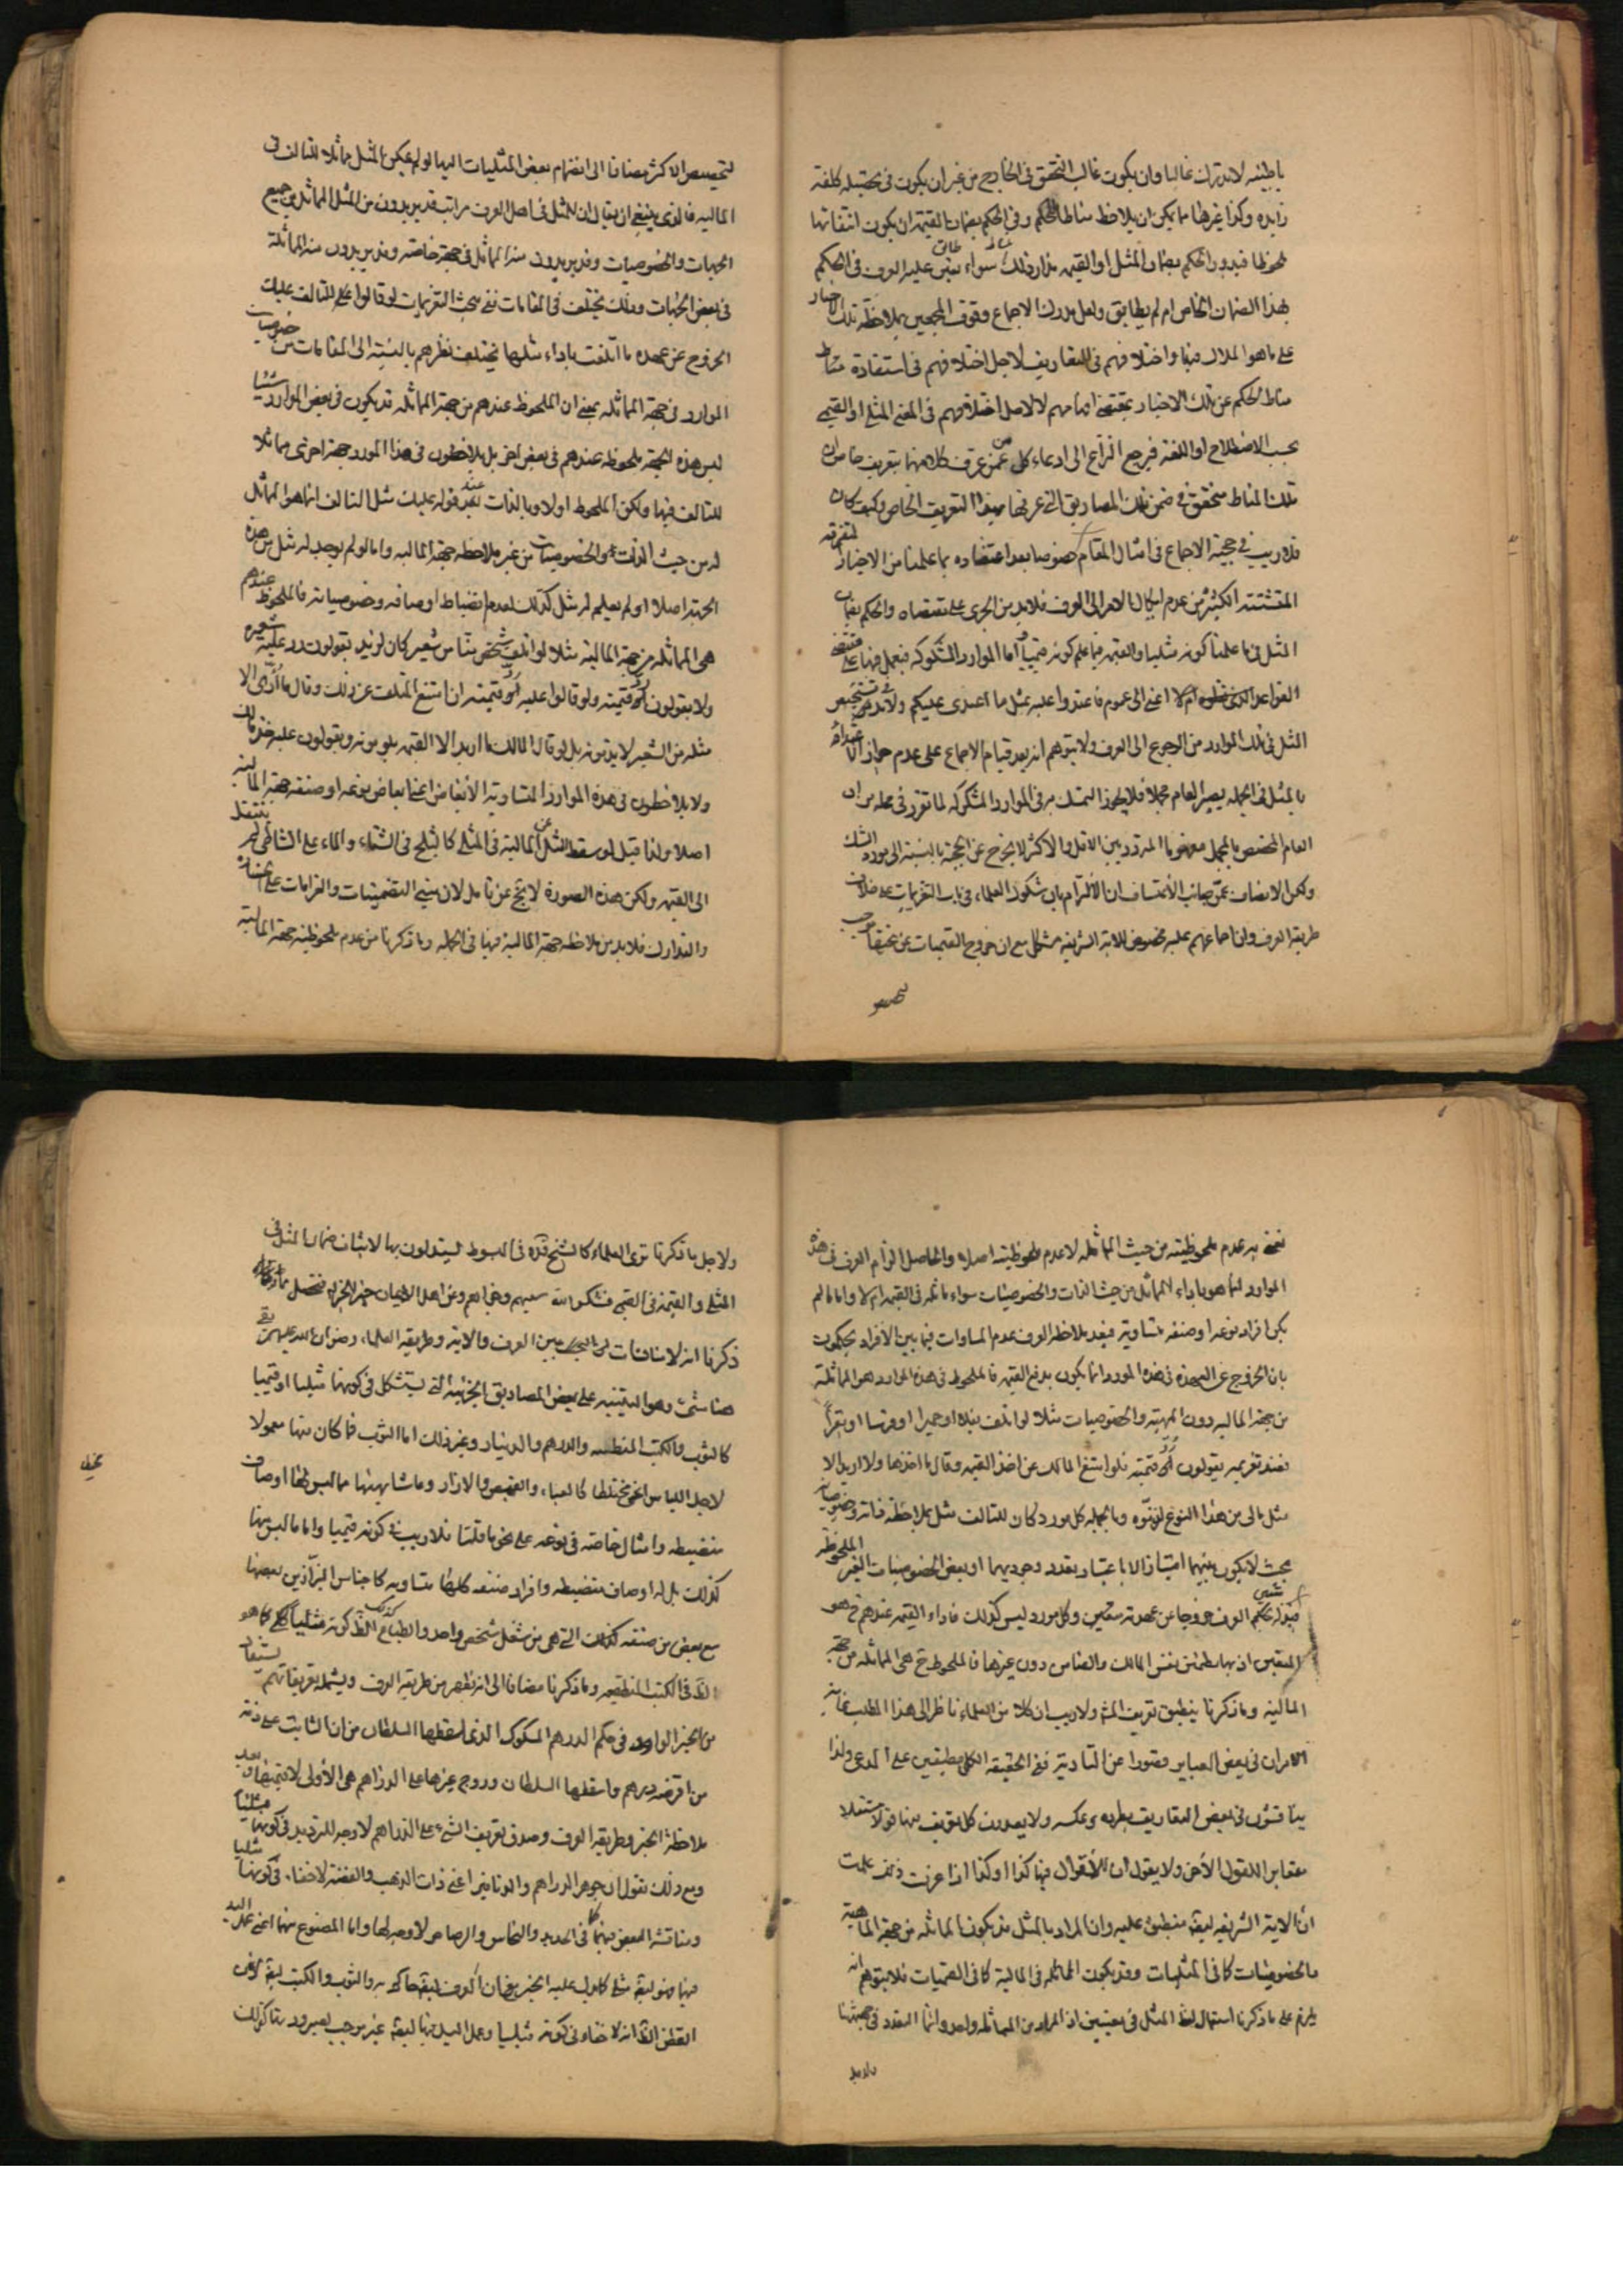 باطنيه لا تدرك غالبا وان يكون غالب التحقق فى الخارج من غير ان يكون فى تحصيله كلفة
زايده وكذا غيرها ما يمكن ان يلاحظ مناطا للحكم وفى الحكم بضمان القيمة ان يكون انتفائها
ملحوظا فيدور الحكم بضمان المثل او القيمه مدار ذلك سواء عليه العرف فى الحكم
بهذا الضمان الخاص ام لم يطابق ولعل مدرك الاجماع وقوف المجمعين بملاحظة تلك الاخبار
على ما هو الملاك فيها واختلافهم فى التعاريف لاجل اختلافهم فى استفادة مناط
مناط الحكم عن تلك الاخبار بمقتضى افهامهم لا لاصل اختلافهم فى المعنى المثلى او القيمى
بحسب الاصطلاح او اللغة فيرجع النزاع الى ادعاء كل من عرف كلا منها بتعريف خاص ان
تلك المناط متحقق فى ضمن تلك المصاديق التى عرفها بهذا التعريف الخاص وكيف كان
فلا ريب فى حجية الاجماع فى امثال المقام خصوصا بعد اعتضاده بما علمنا من الاخبار المتفرقه
المتشتته الكثيرة من عدم ايكال الامر الى العرف فلا بد من الجرى على مقتضاه والحكم بضمان
المثل فى ما علمنا كونه مثليا والقيمه فيما علم كونه قيميا واما الموارد المشكوكه فيعمل فيها على مقتضى
القواعد اعنى الى عموم فاعتدوا عليه بمثل ما اعتدى عليكم ولا بد فى تشخيص
المثل فى تلك الموارد من الرجوع الى العرف ولا يتوهم انه بعد قيام الاجماع على عدم جواز الاعتداء
بالمثل فى الجمله يصير العام مجملا فلا يجوز التمسك به فى الموارد المشكوكه لما تقرر فى محله من ان
العام المخصص بالمجمل مفهوما المتردد بين الاقل والاكثر لا يخرج عن الحجية بالنسبة الى مورد الشك
ولكن الانصاف بمجانب الاعتساف ان الالتزام بان شكوك العلماء فى باب الغرامات على خلاف
طريقة العرف وان اجماعهم عليه مخصص للاية الشريفه مشكل مع ان خروج القيميات عن تحتها يوجب
لتخصيص
لتخصيص الاكثر مضافا الى انضمام بعض المثليات اليها لو لم يكن المثل مماثلا للتالف فى
الماليه فالذى ينبغى ان يقال ان للمثل فى اصل العرف مراتب قد يريدون من المثل المماثل فى جميع
الجهات والخصوصيات وقد يريدون منه المماثل فى جهة خاصه وقد يريدون منه المماثلة
فى بعض الجهات وذلك يختلف فى المقامات ففى مبحث الغرامات لو قالوا على المتلف عليك
الخروج عن عهده ما اتلفت باداء مثلها يختلف نظرهم بالنسبة الى المقامات من خصوصيات
الموارد فى جهة المماثله بمعنى ان الملحوظ عندهم من جهة المماثله قد يكون فى بعض الموارد شيئا
ليس هذه الجهة ملحوظه عندهم فى بعض اخر بل يلاحظون فى هذا المورد جهة اخرى مماثلا
للتالف فيها ولكن الملحوظ اولا وبالذات عند قوله عليك مثل التالف انما هو المماثل
له من حيث الذات والخصوصيات من غير ملاحظه جهة الماليه واما لو لم يوجد له مثل من هذه
الجهة اصلا او لم يعلم له مثل كذلك لعدم انضباط اوصافه وخصوصياته فالملحوظ عندهم
هى المماثله من جهة الماليه مثلا لو اتلف شخص منا من شعير كان لزيد يقولون رد عليه شعيره
ولا يقولون ادّ قيمته ولو قالوا عليه ادّ قيمته ان امتنع المتلف عن ذلك وقال ما اؤدّى الا
مثله من الشعير لا يذمونه بل لو قال المالك ما اريد الا القيمه يلومونه ويقولون عليه خذ مالك
ولا يلاحظون فى هذه الموارد المتساوية الابعاض اعنى ابعاض نوعه او صنفه جهة المالية
اصلا ولذا قيل لو سقط المثل عن المالية فى المثلى كالثلج فى الشتاء والماء على الشاطى لم ينتقل
الى القيمه ولكن هذه الصورة لا تخ عن تامل لان مبنى التضمينات والغرامات على
والتدارك فلا بد من ملاحظه جهة المالية فيها فى الجمله وما ذكرنا من عدم ملحوظيته جهة المالية
نعنى به عدم ملحوظيته من حيث المماثله لا عدم ملحوظيته اصلا والحاصل الزام العرف فى هذه
الموارد انما هو باداء المماثل من حيث الذات والخصوصيات سواء ماثله فى القيمه ام لا واما ما لم
يكن افراد نوعه او صنفه متساوية فبعد ملاحظه العرف عدم المساوات فيما بين الافراد يحكمون
بان الخروج عن العهدة فى هذه المورد انما يكون بدفع القيمه فالملحوظ فى هذه الموارد هو المماثلة
من جهة الماليه دون المهية والخصوصيات مثلا لو اتلف عبدا او حميرا او فرسا او بقرا
فعند تغريمه يقولون ادّ قيمته فلو امتنع المالك عن اخذ القيمه وقال ما اخذها ولا اريد الا
مثل مالى من هذا النوع وبالجمله كل مورد كان للتالف مثل بملاحظة ذاته وخصوصياته
بحيث لا يكون بينهما امتياز الا باعتبار تعدد وجوديهما او بعض الخصوصيات الغير الملحوظه
العرف خروجا عن عهدته متعين وكل مورد ليس كذلك فاداء القيمه عندهم ح هو
المتعين اذ بها يطمئن نفس المالك والضامن دون غيرها فالملحوظ ح هى المماثله من جهة
المالية وما ذكرنا ينطبق تعريف المش ولا ريب ان كلا من العلماء ناظر الى هذا المطلب غايه
الامر ان فى بعض العباير قصورا عن التادية ففى الحقيقة الكل مطبقين على المدعى ولذا
يناقشون فى بعض التعاريف بطرده وعكسه ولا يعدون كل تعريف منها قولا مستقلا
مغايرا للقول الاخر ولا يقول ان الاقوال فيها كذا او كذا اذا عرفت ذلك علمت
ان الاية الشريفه ايضا منطبق عليه وان المراد بالمثل قد يكون المماثله من جهة الماهية
والخصوصيات كما فى المثليات وقد يكون المماثله فى المالية كما فى القيميات فلا يتوهم انه
يلزم على ما ذكرنا استعمال لفظ المثل فى معنيين اذ المراد من المماثله واحد وانما التعدد فى جهتها
ولاجل
ولاجل ما ذكرنا ترى العلماء كالشيخ قده فى المبسوط يستدلون بها لاثبات ضمان المثل فى
المثلى والقيمة فى القيمى فشكر الله سعيهم وجزاهم عن اهل الايمان خير الجزاء فتحصل مما
ذكرنا انه لا منافات بين العرف والاية وطريقة العلماء رضوان الله عليهم بقى
هنا شئ وهو التنبيه على بعض المصاديق الجزئية التى يستشكل فى كونها مثليا او قيميا
كالثوب والكتب المنطبعه والدرهم والدينار وغير ذلك اما الثوب فما كان منها معمولا
لاجل اللباس اعنى مختلطا كالعباء والقميص والازار وما شابهها مما ليس لها اوصاف
منضبطه وامثال خاصه فى نوعه على نحو ما قلنا فلا ريب فى كونه قيميا واما ما ليس منها
كذلك بل له اوصاف منضبطه وافراد صنفه كلها متساويه كاجناس البزازين بعضها
مع بعض من صنفه كذلك التى هى من شغل شخص واحد والظاهر كونه مثليا كما هو
الظ فى الكتب المنطبعه وما ذكرنا مضافا الى انه يظهر من طريقة العرف ويشمله تعريفاتهم يستفاد
من الخبر الوارد فى حكم الدرهم المسكوك الذى اسقطها السلطان من ان الثابت على ذمة
من اقرضه درهم واسقطها السلطان وروج غيرها على الدراهم هى الاولى لا قيمتها وبعد
ملاحظة الخبر وطريقة العرف وصدق تعريف الشى على الدراهم لا وجه للترديد فى كونها مثليا
ومع ذلك نقول ان جوهر الدراهم والدنانير اعنى ذات الذهب والفضة لا خفاء فى كونها مثليا
ومناقشة البعض فيهما كما فى الحديد والنحاس والرصاص لا وجه لها واما المصنوع منها اعنى
منها فهو ايضا مثلى كما يدل عليه الخبر فان العرف ايضا حاكم به والثوب والكتب ايضا
القطن الظ انه لا خفاء فى كونه مثليا وعمل اليد فيها ايضا غير موجب لصيرورتها كذلك